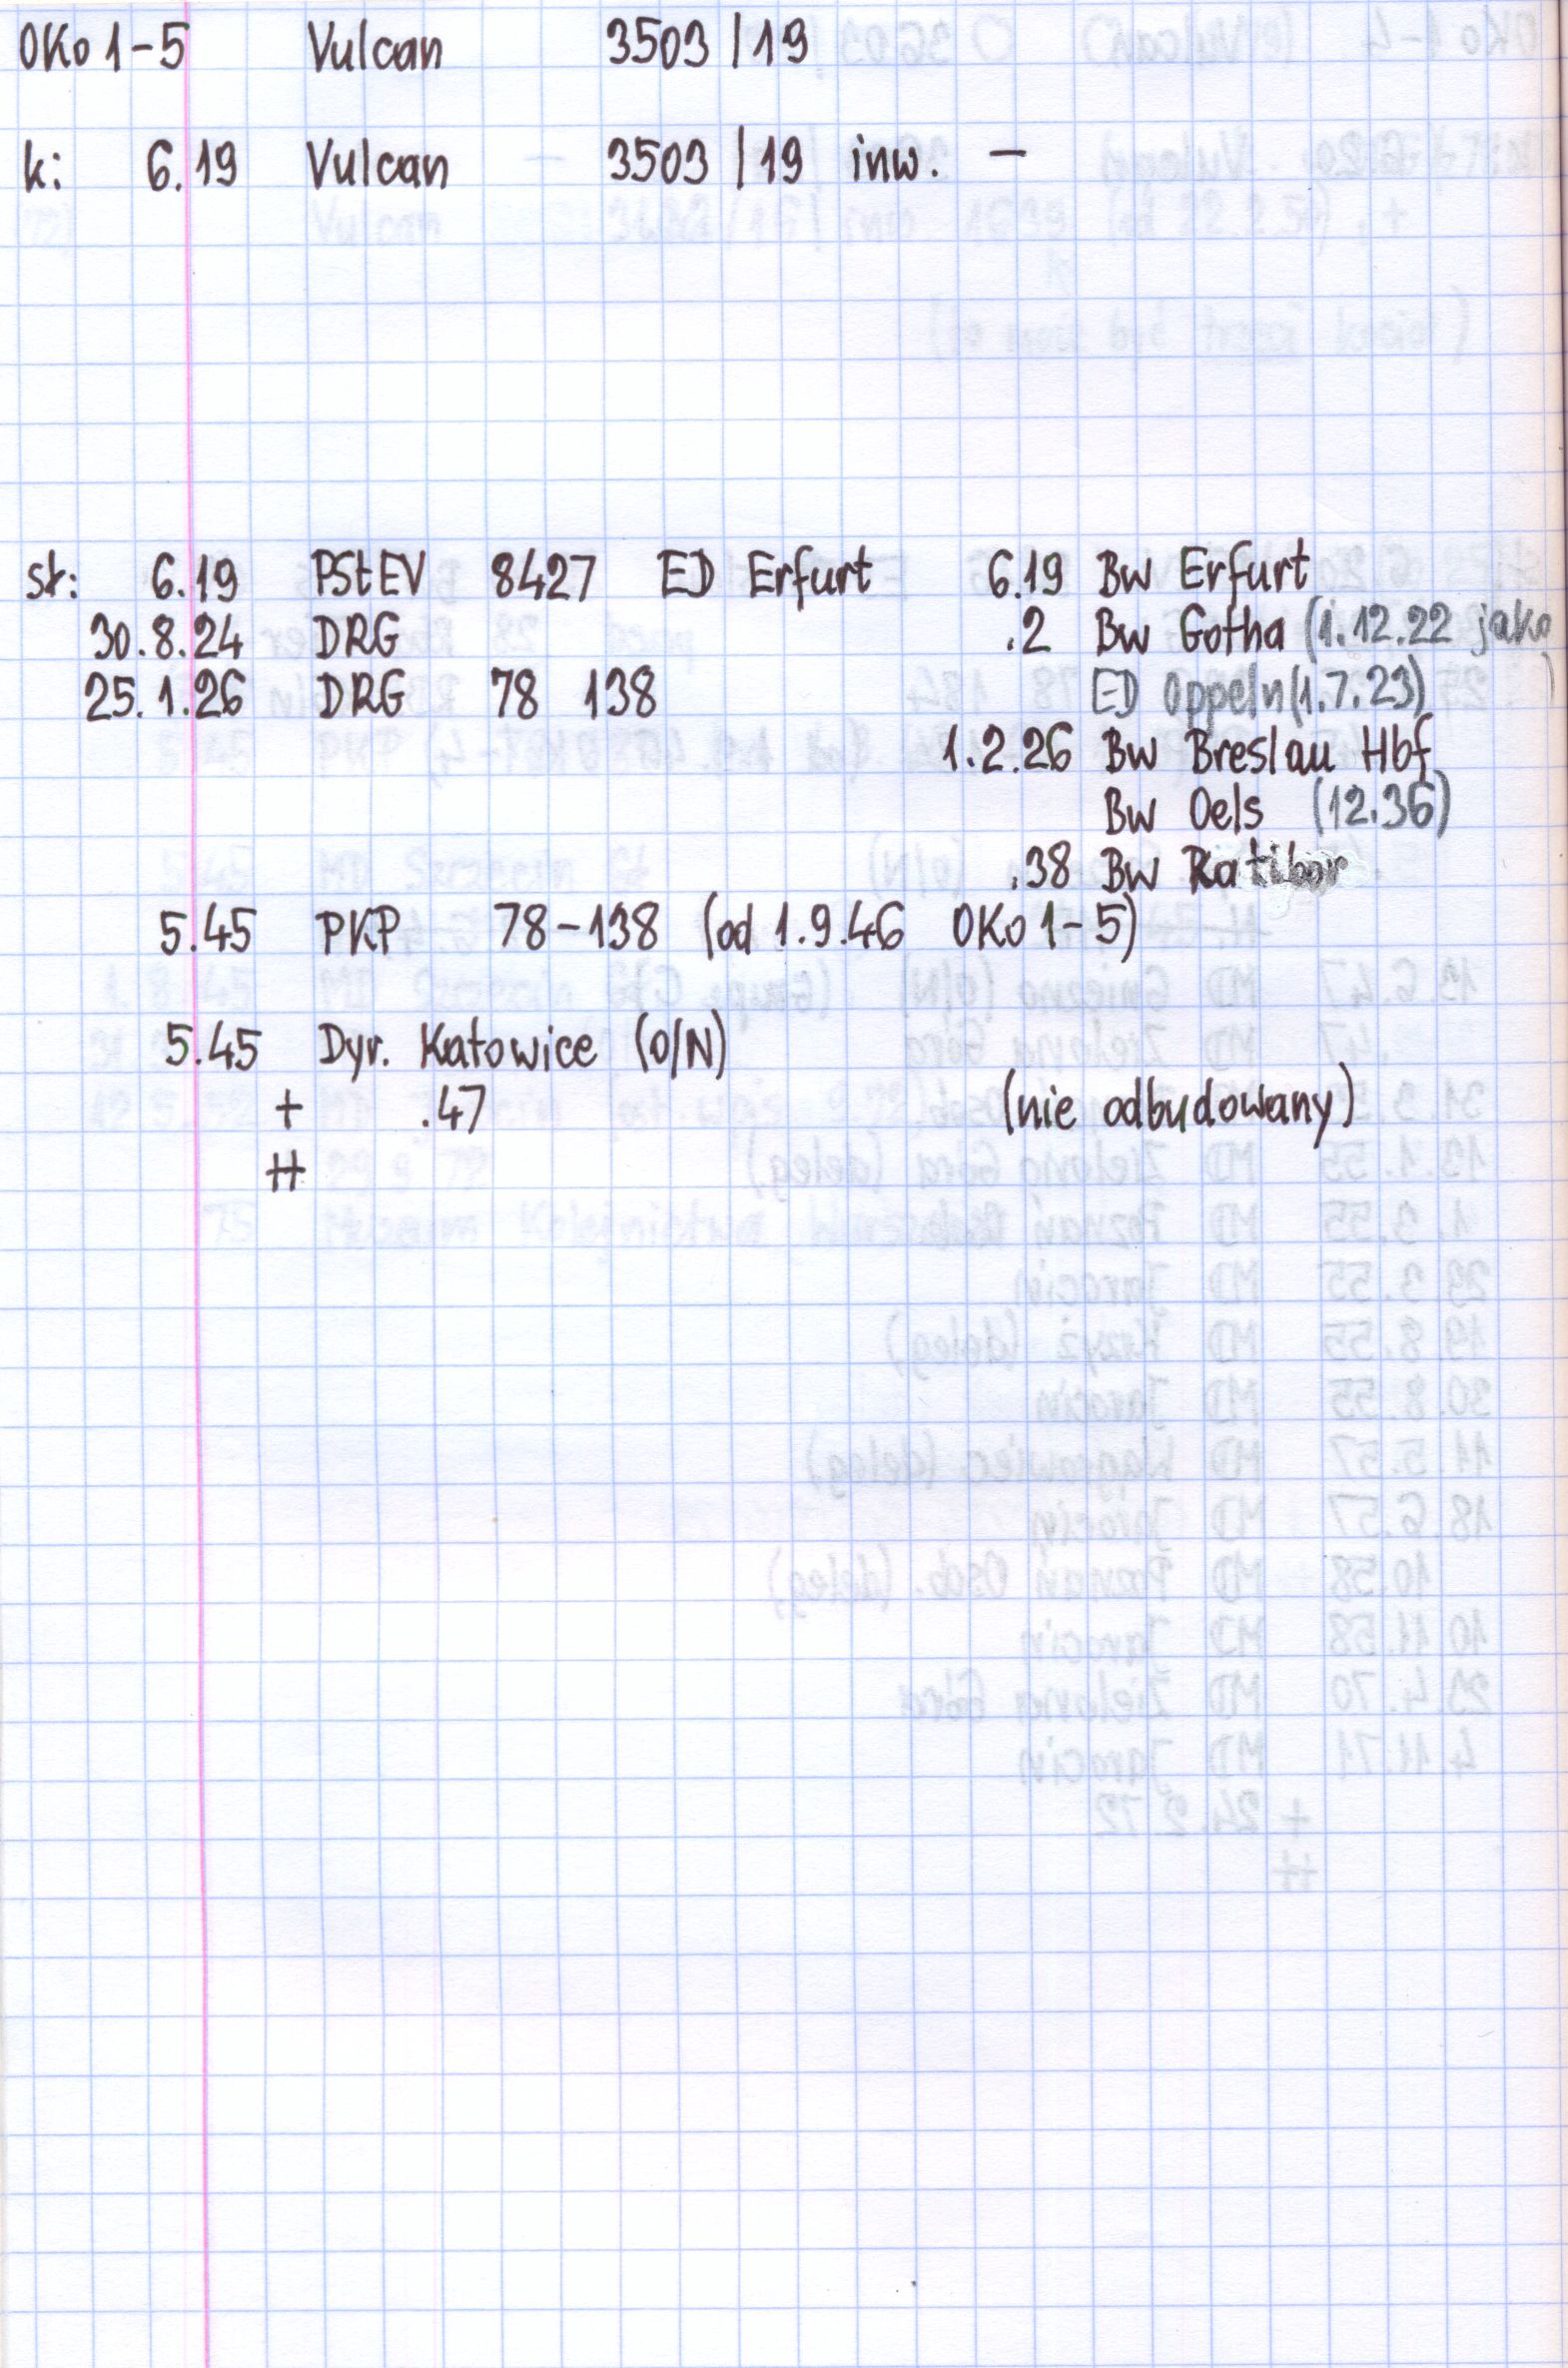 OKo1-5 Vulcan 3503/19
k: 6.19 Vulcan 3503/19 inw. -
st: 6.19 PStEV 8427 ED Erfurt 6.19 Bw Erfurt
30.8.24 DRG .2 Bw Gotha (1.12.22 jako
25.1.26 DRG 78 138 ED Oppeln (1.7.23) )
1.2.26 Bw Breslau Hbf
Bw Oels (12.36)
.38 Bw Ratibor
5.45 PKP 78-138 (od 1.9.46 OKo1-5)
5.45 Dyr. Katowice (O/N)
+ .47 (nie odbudowany)
++